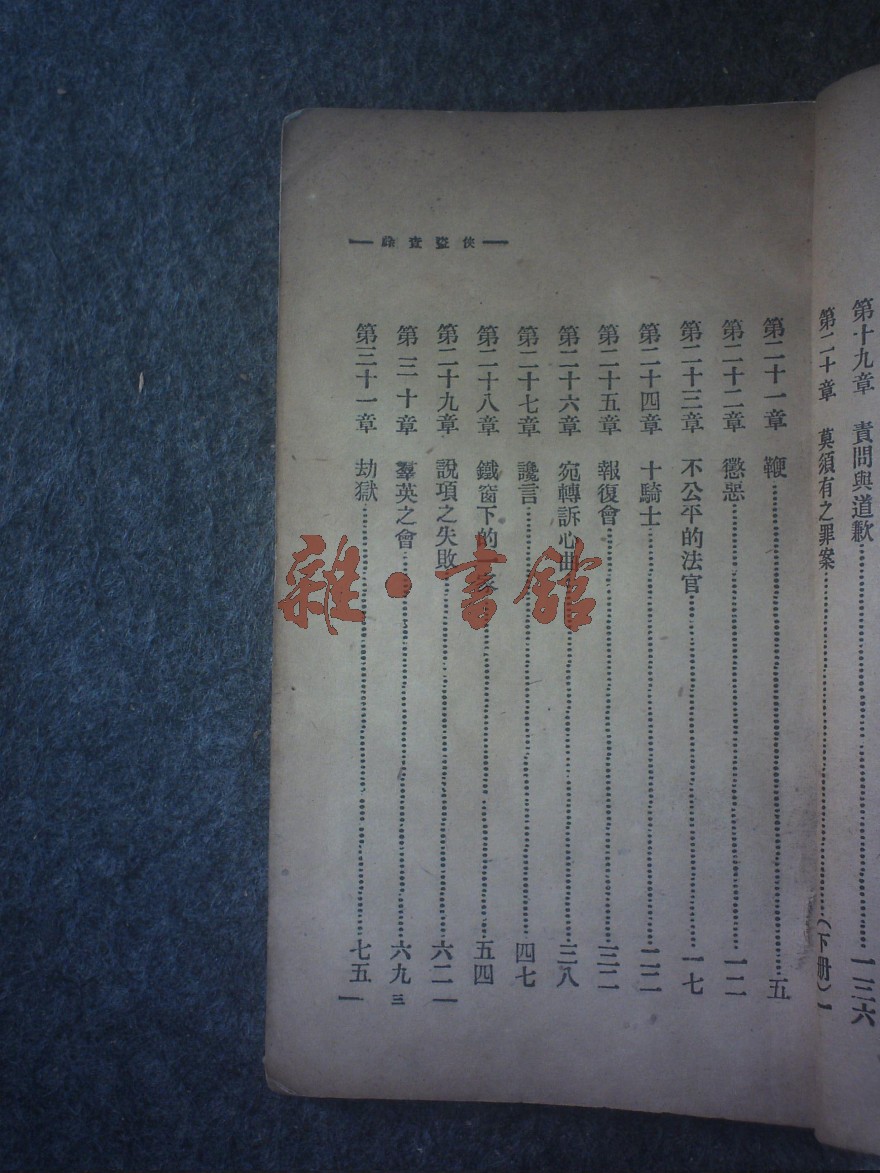 俠盜查祿
第十九章 責問與道歉 一三六
第二十章 莫須有之罪案 (下册)一
第二十一章 鞭 五
第二十二章 懲惡 一二
第二十三章 不公平的法官 一七
第二十四章 十騎士 二二
第二十五章 報復會 三二
第二十六章 宛轉訴心曲 三八
第二十七章 讒言 四七
第二十八章 鐵窗下的 五四
第二十九章 說項之失敗 六二
第三十章 羣英之會 六九
第三十一章 劫獄 七五
三
雜·書館